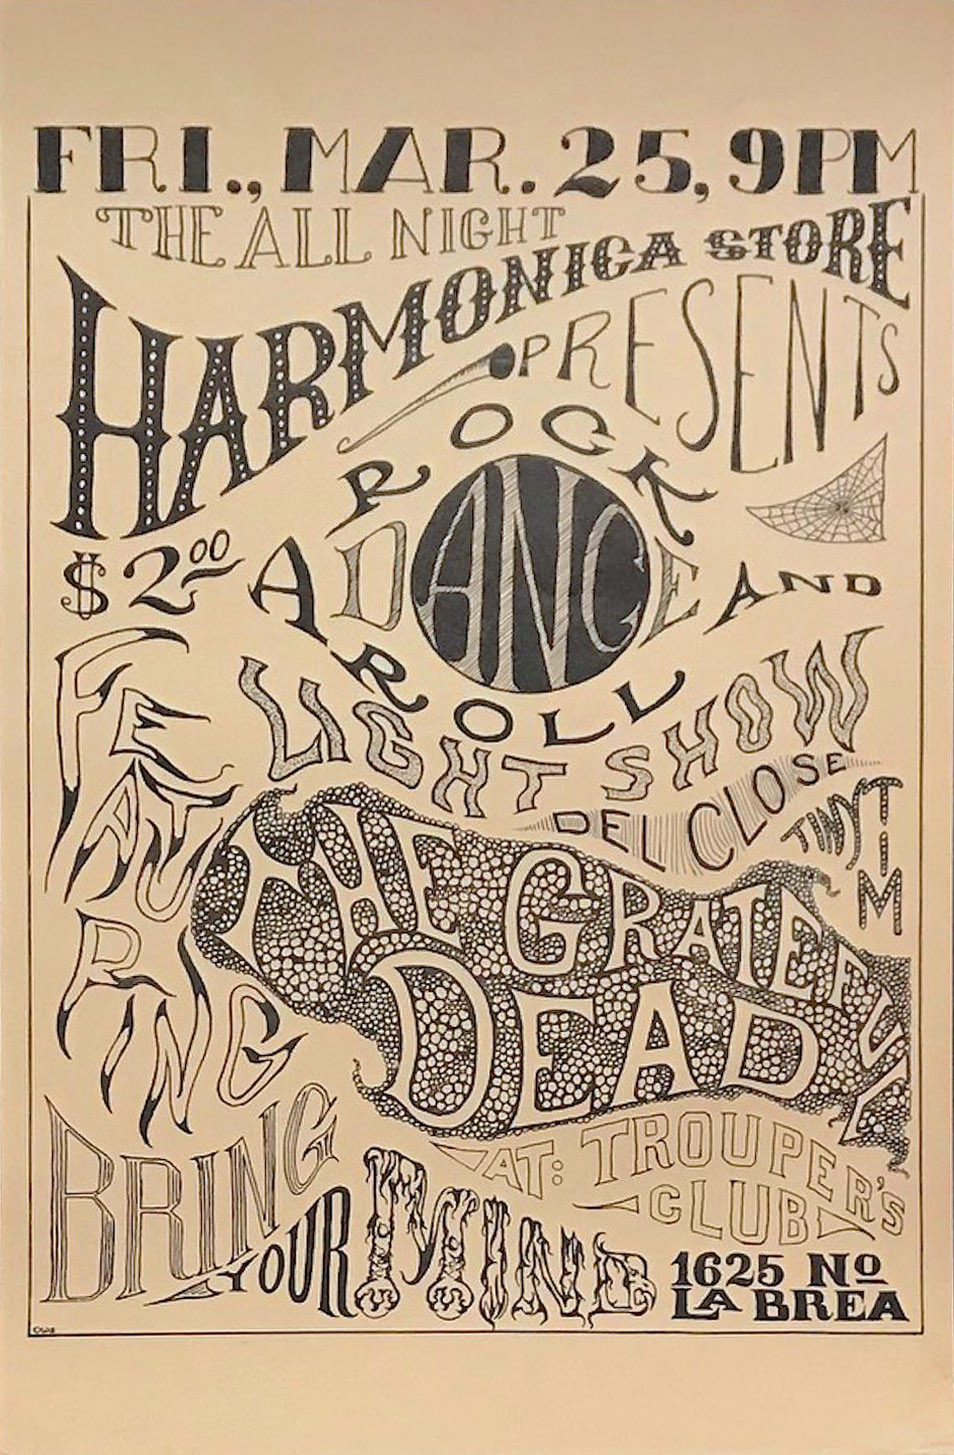 FRI., MAR. 25, 9PM
THE ALL NIGHT
HARMONICA STORE
PRESENTS
$2.00
A ROCK AND ROLL
DANCE
LIGHT SHOW
DEL CLOSE
TINY TIM
FEATURING
THE GRATEFUL
DEAD
AT: TROUPER'S
CLUB
BRING
YOUR MIND
1625 NO
LA BREA